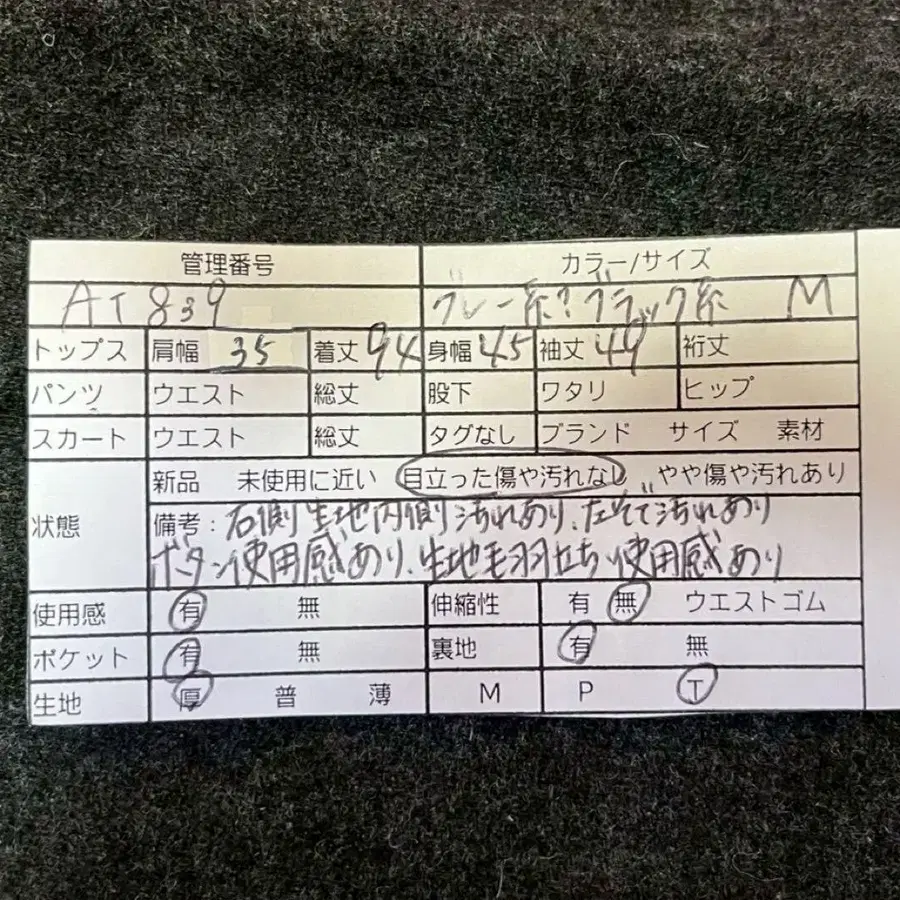 管理番号 カラー/サイズ
AT839 グレー系?ブラック系 M
トップス 肩幅 35 着丈 94 身幅 45 袖丈 49 裄丈
パンツ ウエスト 総丈 股下 ワタリ ヒップ
スカート ウエスト 総丈 タグなし ブランド サイズ 素材
状態 新品 未使用に近い 目立った傷や汚れなし やや傷や汚れあり
備考:右側生地内側汚れあり、左そで汚れあり
ボタン使用感あり、生地毛羽立ち使用感あり
使用感 有 無 伸縮性 有 無 ウエストゴム
ポケット 有 無 裏地 有 無
生地 厚 普 薄 M P T